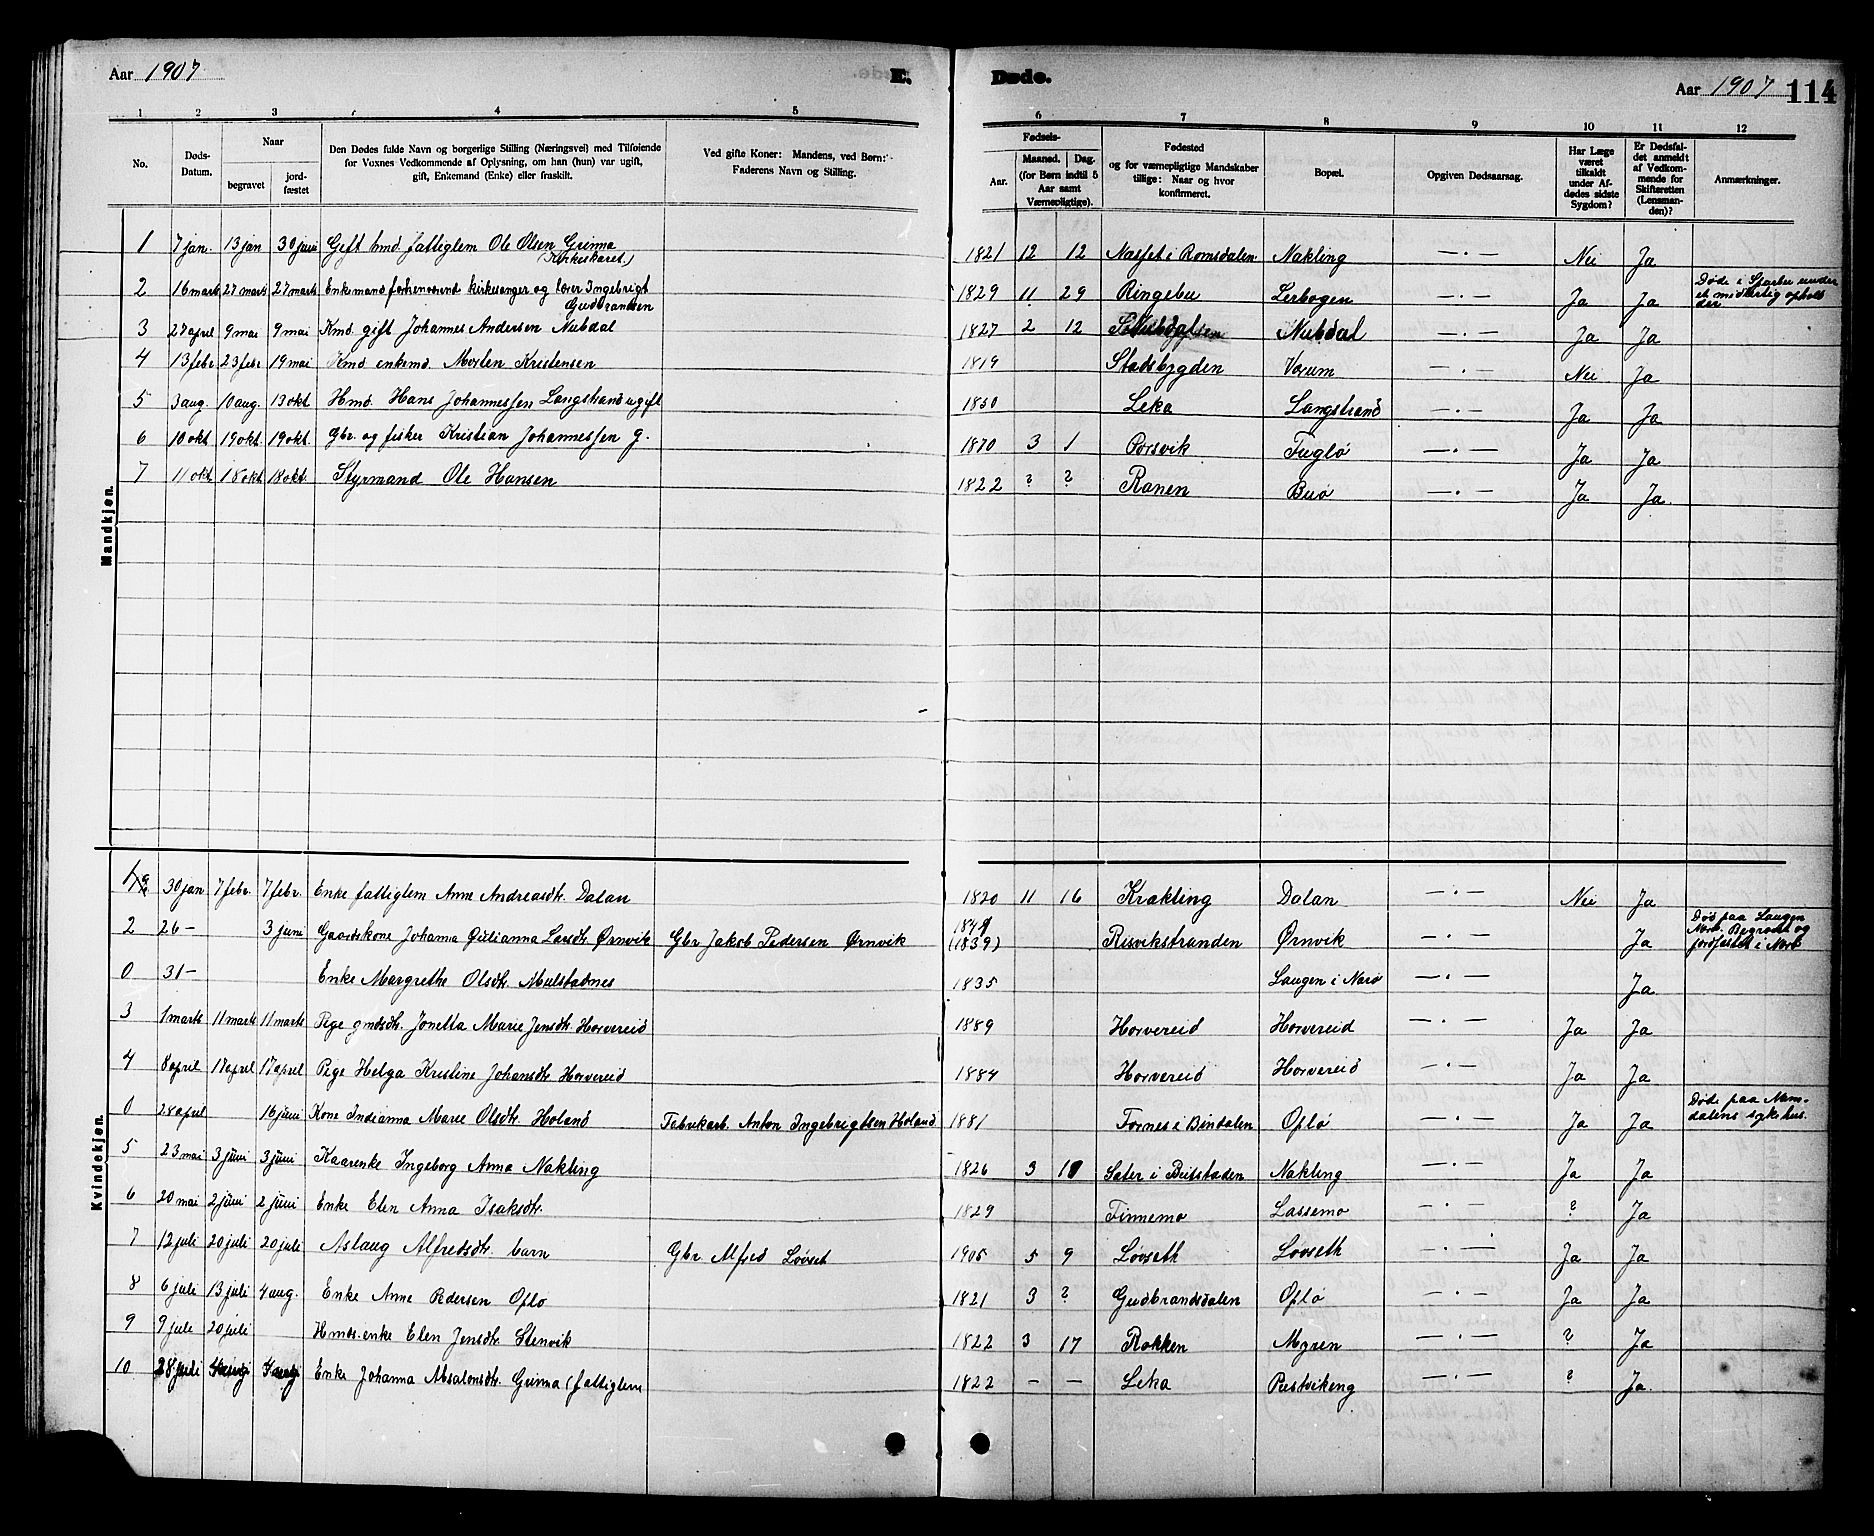 Aar 1907
E.
Døde.
Aar 1907 114
1 2 3 4 5 6 7 8 9 10 11 12
No.
Døds-Datum.
Naar
begravet
jord-fæstet
Den Dødes fulde Navn og borgerlige Stilling (Næringsvei) med Tilføiende
for Voxnes Vedkommende af Oplysning, om han (hun) var ugift,
gift, Enkemand (Enke) eller fraskilt.
Ved gifte Koner: Mandens, ved Børn:
Faderens Navn og Stilling.
Fødsels-
Aar.
Maaned. Dag.
(for Børn indtil 5
Aar samt
Værnepligtige).
Fødested
og for værnepligtige Mandskaber
tillige: Naar og hvor
konfirmeret.
Bopæl.
Opgiven Dødsaarsag.
Har Læge
været
tilkaldt
under Af-
dødes sidste
Sygdom?
Er Dødsfal-
det anmeldt
af Vedkom-
mende for
Skifteretten
(Lensman-
den)?
Anmærkninger.
Mandkjøn.
1 7 jan. 13 jan 30 juni Gift hmd. fattiglem Ole Olsen Grinna (Kirkeskaret.) 1821 12 12 Næsset i Romsdalen Nakling —·— Nei Ja
2 16 marts 27 marts 27 marts Enkemand forhenværende kirkesanger og lærer Ingebrigt Gudbrandsen 1829 11 29 Ringebu Lerbogen —·— Ja Ja Døde i Sparbu under et midlertig ophold der
3 27 april 9 mai 9 mai Kmd. gift Johannes Andersen Nubdal 1827 2 12 Nubdal —·— Ja Ja
4 13 febr 23 febr 19 mai Kmd enkemd. Morten Kristensen 1819 Stadsbygden Værum —·— Nei Ja
5 3 aug. 10 aug. 13 okt Hmd. Hans Johannessen Langstrand ugift 1850 Leka Langstrand —·— Ja Ja
6 10 okt 19 okt. 19 okt. Gbr. og fisker Kristian Johannessen g. 1870 3 1 Porsvik Fuglø —·— Ja Ja
7 11 okt 18 okt 18 okt. Styrmand Ole Hansen 1822 ? ? Ranen Buø —·— Ja Ja.
Kvindekjøn.
1 30 jan 7 febr. 7 febr. Enke fattiglem Anne Andreasdtr. Dalan 1820 11 16 Krakling Dalan —·— Nei Ja
2 26 — 3 juni Gaardskone Johanna Julianna Larsdtr Ørnvik Gbr Jakob Pedersen Ørnvik (1839) Risvikstranden Ørnvik —·— Ja Død paa Laugen Nærø. Begravet og jordfæstet i Nærø
0 31 — Enke Margrethe Olsdtr. Mulstadnes 1835 Laugen i Nærø —·— Ja.
3 1 marts 11 marts 11 marts Pige gmdsdtr. Jonetta Marie Jensdtr Horvereid 1889 Horvereid Horvereid —·— Ja Ja
4 8 april 17 april 17 april Pige Helga Kristine Johansdtr Horvereid 1884 Horvereid Horvereid —·— Ja Ja
0 28 april 16 juni Kone Indianna Marie Olsdtr. Holand Fabrikarb. Anton Ingebrigtsen Holand 1881 Fornes i Bindalen Oplø —·— Ja Ja Døde paa Namdalens sykehus.
5 23 mai 3 juni 3 juni Kaarenke Ingeborg Anna Nakling 1826 3 Sæter i Beitstaden Nakling —·— Ja Ja
6 20 mai 2 juni 2 juni Enke Elen Anna Isaksdtr. 1829 Finnemo Lassemo —·— ? Ja
7 12 juli 20 juli 20 juli Aslaug Alfredsdtr. barn Gbr Alfred Løvset 1905 5 9 Løvseth Løvseth —·— Ja Ja
8 6 juli 13 juli 4 aug. Enke Anne Pedersen Oplø 1821 3 ? Gudbrandsdalen Oplø —·— Ja Ja
9 9 juli 20 juli Hmds.enke Elen Jensdtr. Stenvik 1822 3 17 Rokken Myren —·— ? Ja
10 28 juli Enke Johanna Absalonsdtr. Grinna (fattiglem 1822 — — Leka Prestvikeng —·— ? Ja.